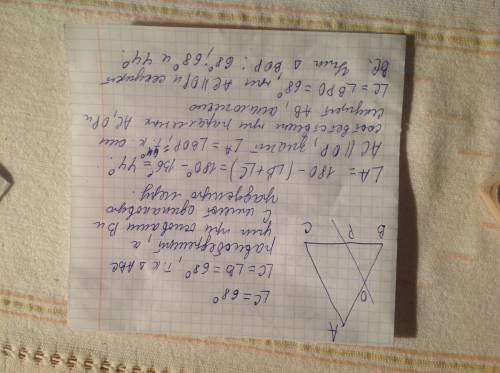 ∠C = 68°
∠C = ∠B = 68°, т.к △ ABC
равнобедренный, а
углы при основании B и
C имеют одинаковую
градусную меру.
A
O
B
P
C
∠A = 180 - (∠B + ∠C) = 180° - 136° = 44°.
AC || OP, значит ∠A = ∠BOP = 44° к
AC, OP и
секущей AB, аналогично
∠C = ∠BPO = 68°, при AC || OP и секущей
BC. Углы △ BOP: 68°; 68° и 44°.